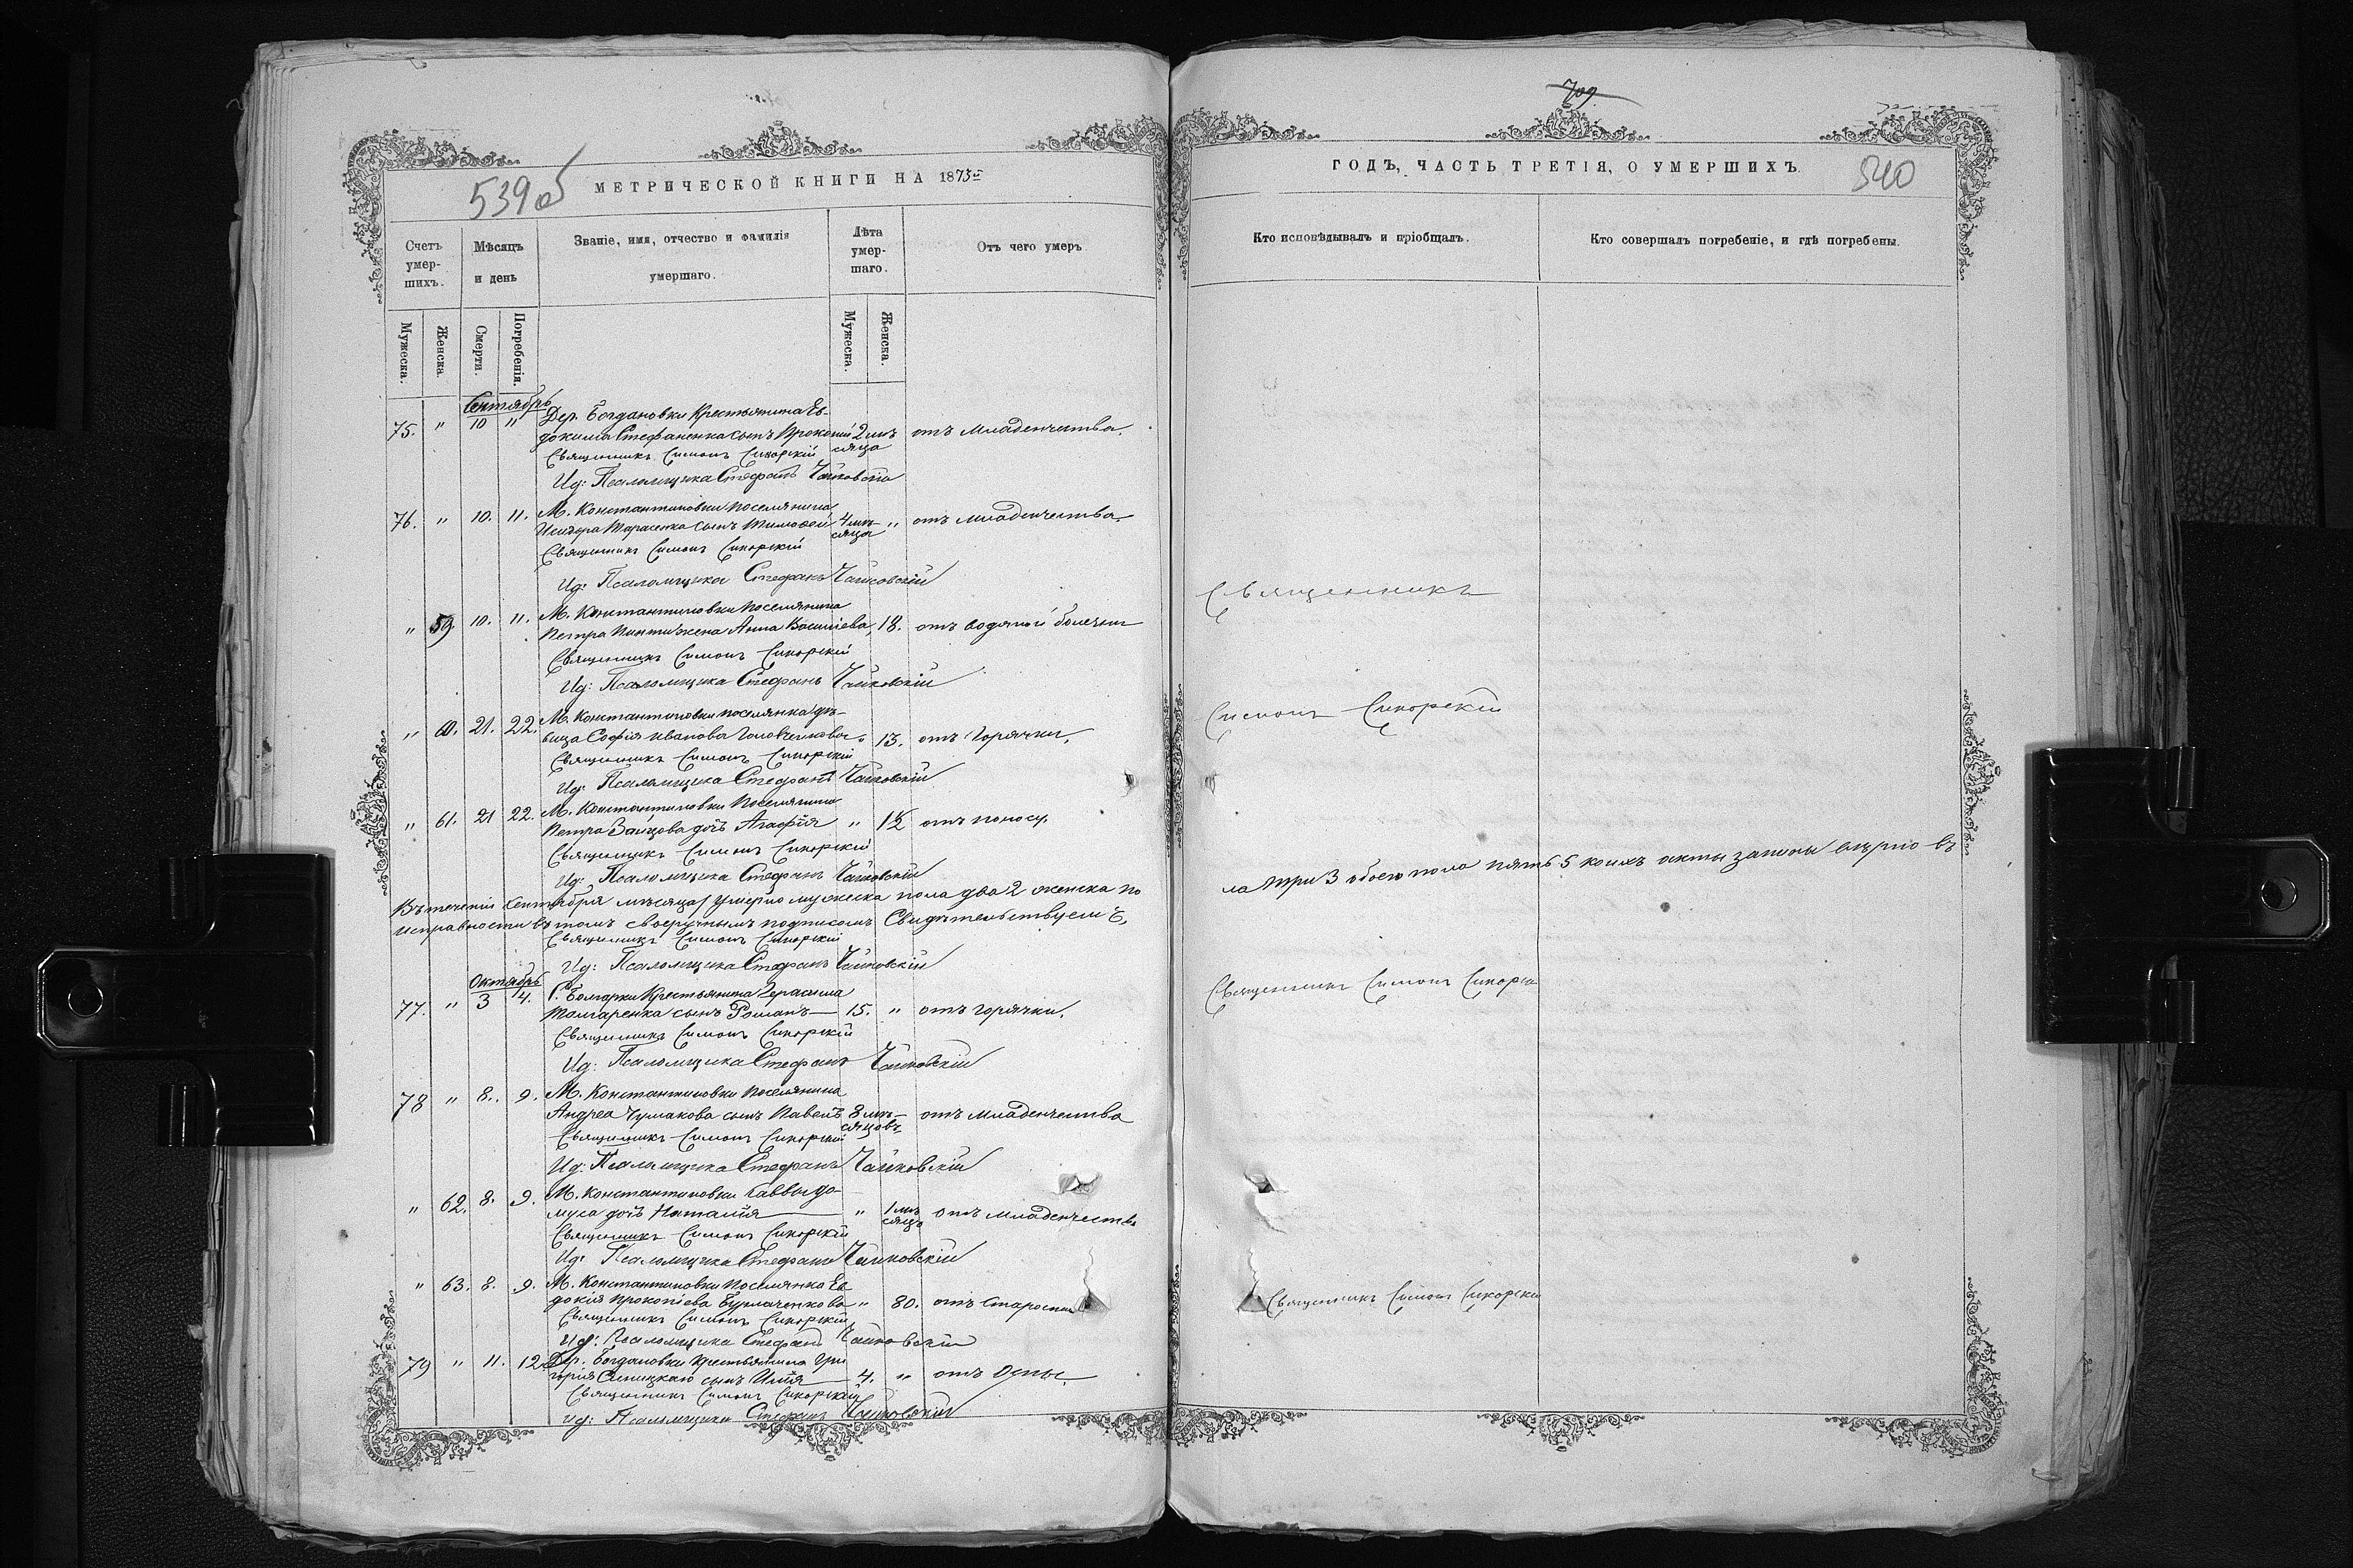 539об
МЕТРИЧЕСКОЙ КНИГИ НА 1873й
Счетъ умер-шихъ.
Мѣсяцъ и день
Званіе, имя, отчество и фамилія умершаго.
Лѣта умер-шаго.
Отъ чего умеръ
Мужеска.
Женска.
Смерти.
Погребенія.
Мужеска.
Женска.
Сентябрь
75. " 10 " Дер. Богдановки Крестьянина Ев-
докима Стефаненка сынъ Прокопій 2 мѣ- отъ младенчества.
Священникъ Симонъ Сикорскій сяца
Ид: Псаломщика Стефанъ Чайковскій
76. " 10. 11. М. Константиновки поселянина
Исидора Тарасенка сынъ Тимофей 4 мѣ- " отъ младенчества.
Священникъ Симонъ Сикорскій сяца
Ид: Псаломщика Стефанъ Чайковскій
" 59. 10. 11. М. Константиновки поселянина
Петра жена Анна Василіева, 18. отъ водяной болезни
Священникъ Симонъ Сикорскій
Ид: Псаломщика Стефанъ Чайковскій
" 60. 21. 22. М. Константиновки поселянка дѣ-
вица Софія Иванова Головченкова " 13. отъ горячки.
Священникъ Симонъ Сикорскій
Ид: Псаломщика Стефанъ Чайковскій
" 61. 21 22. М. Константиновки поселянина
Петра Зайцова дочь Агафія " 1½ отъ поносу.
Священникъ Симонъ Сикорскій
Ид: Псаломщика Стефанъ Чайковскій
Въ теченіи Сентября мѣсяца умерло мужеска пола два 2 женска по
исправности въ томъ своеручнымъ подписомъ Свидѣтельствуемъ.
Священникъ Симонъ Сикорскій
Ид: Псаломщика Стефанъ Чайковскій
Октябрь
77. " 3 4. С. Болгарки Крестьянина Герасима
сынъ Романъ 15. " отъ горячки.
Священникъ Симонъ Сикорскій
Ид: Псаломщика Стефанъ Чайковскій
78 " 8. 9. М. Константиновки поселянина
Андрея Чумакова сынъ Павелъ 8 мѣ- отъ младенчества
Священникъ Симонъ Сикорскій сяцовъ
Ид: Псаломщика Стефанъ Чайковскій
" 62. 8. 9. М. Константиновки Саввы До-
муса дочь Наталія " 1 мѣ- отъ младенчества
Священникъ Симонъ Сикорскій сяцъ
Ид: Псаломщика Стефанъ Чайковскій
" 63. 8. 9. М. Константиновки поселянка Ев
докія Прокопіева Бурлаченкова " 80. отъ старости
Священникъ Симонъ Сикорскій
Ид: Псаломщика Стефанъ Чайковскій
79 " 11. 12. Дер. Богдановки крестьянина Гри
горія Синицкаго сынъ Илія 4. " отъ Оспы.
Священникъ Симонъ Сикорскій
Ид: Псаломщика Стефанъ Чайковскій
709
ГОДЪ, ЧАСТЬ ТРЕТІЯ, О УМЕРШИХЪ.
540
Кто исповѣдывалъ и пріобщалъ.
Кто совершалъ погребеніе, и гдѣ погребены.
Священникъ
Симонъ Сикорскій
ла три 3 обоего пола пять 5 коихъ акты записи вѣрно въ
Священникъ Симонъ Сикорскі
Священникъ Симонъ Сикорскі